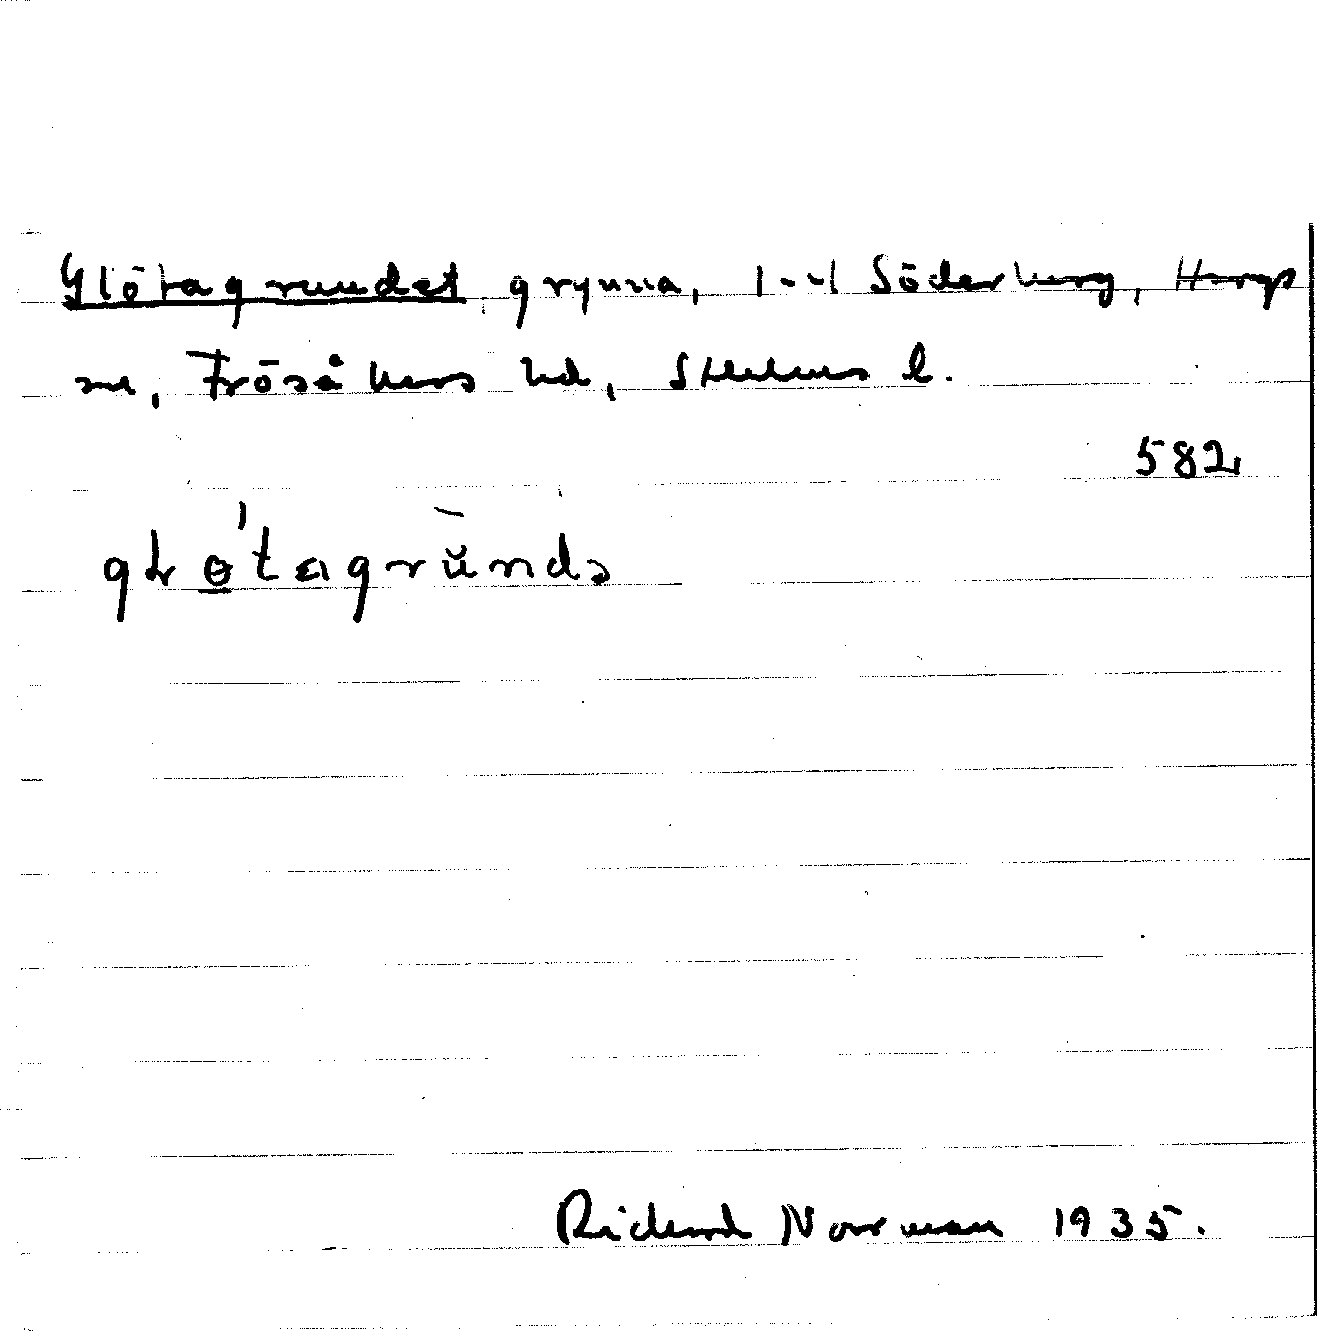 Glötagrundet, grynna, 1-4 Söderberg, Hargs
sn, Frösåkers hd, Sthlms l.
582
gɫo̲'tagrŭndə
Richard Norrman 1935.